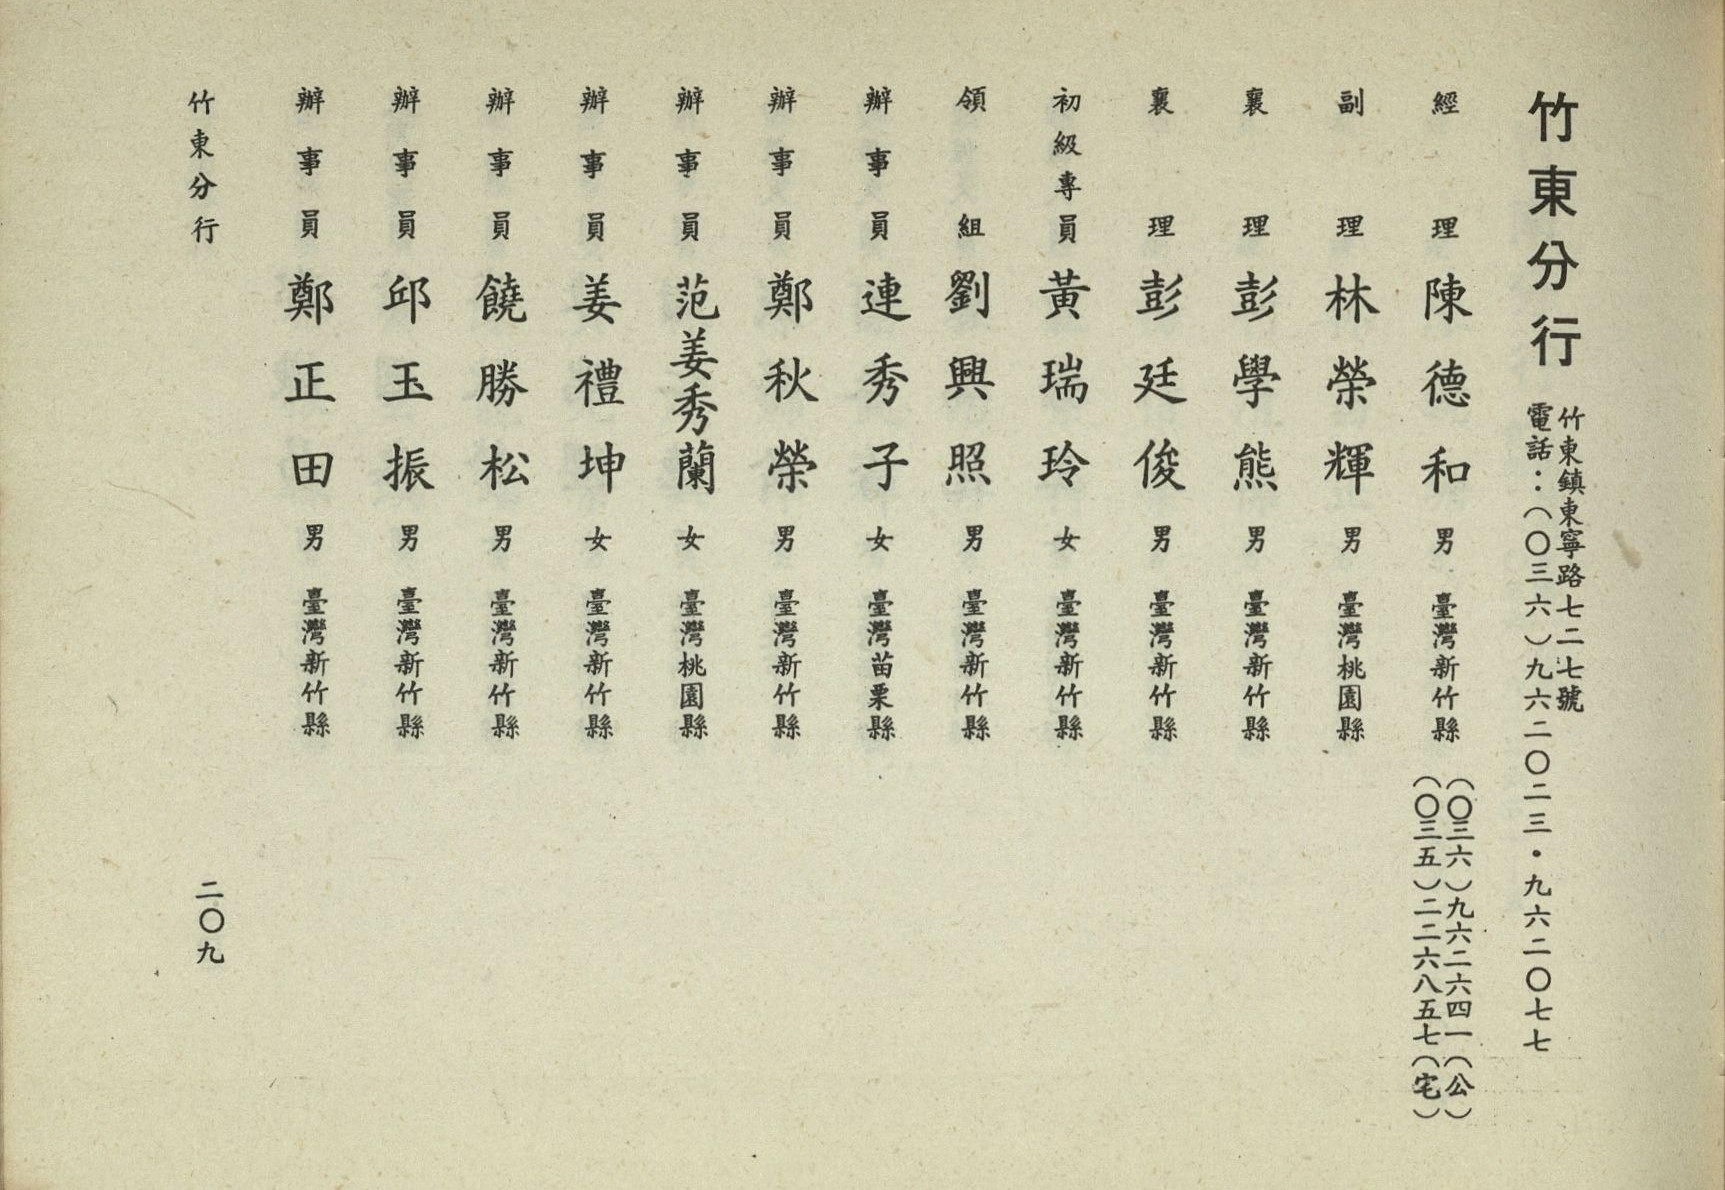 竹東分行
竹東鎮東寧路七二七號
電話：（〇三六）九六二〇二三・九六二〇七七
經理 陳德和 男 臺灣新竹縣
（〇三六）九六二六四一（公）
（〇三五）二二六八五七（宅）
副理 林榮輝 男 臺灣桃園縣
襄理 彭學熊 男 臺灣新竹縣
襄理 彭廷俊 男 臺灣新竹縣
初級專員 黃瑞玲 女 臺灣新竹縣
領組 劉興照 男 臺灣新竹縣
辦事員 連秀子 女 臺灣苗栗縣
辦事員 鄭秋榮 男 臺灣新竹縣
辦事員 范姜秀蘭 女 臺灣桃園縣
辦事員 姜禮坤 女 臺灣新竹縣
辦事員 饒勝松 男 臺灣新竹縣
辦事員 邱玉振 男 臺灣新竹縣
辦事員 鄭正田 男 臺灣新竹縣
竹東分行
二〇九